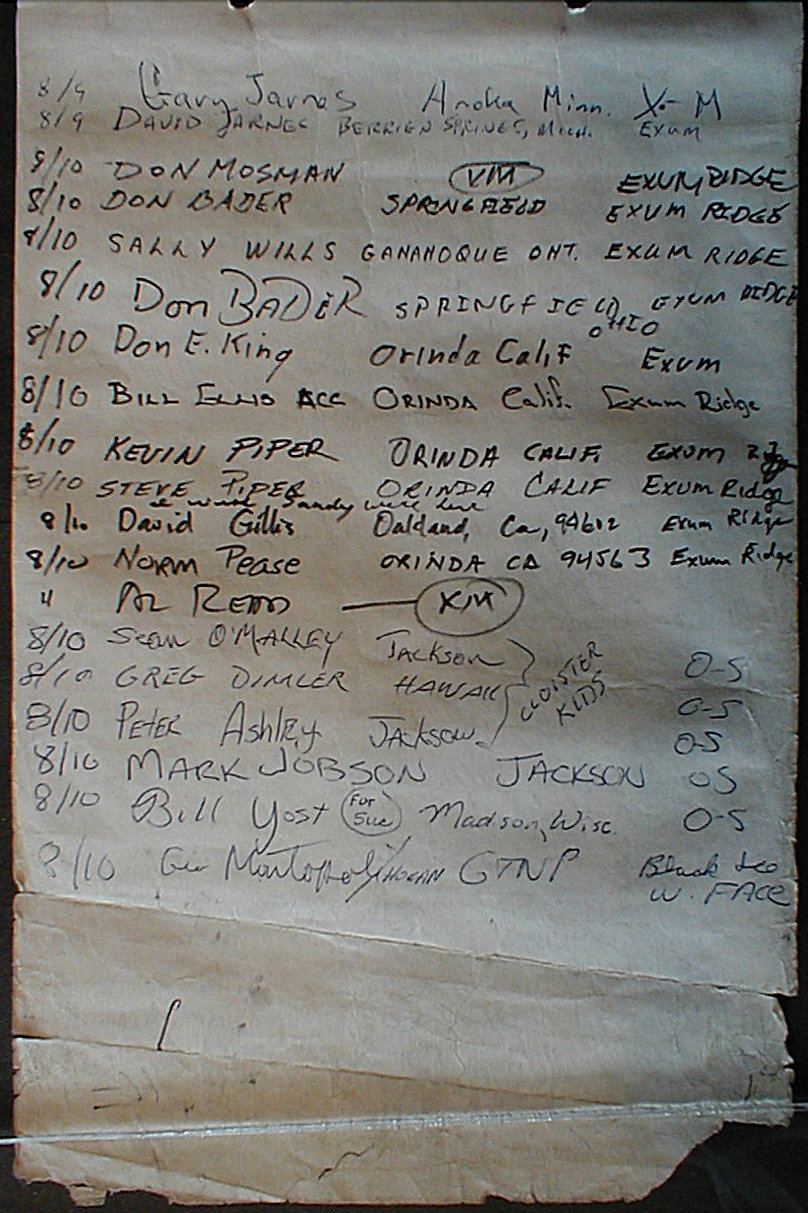 8/9 Gary Jarnes Anoka Minn. X-M
8/9 DAVID JARNES BERRIEN SPRINGS, MICH. EXUM
8/10 DON MOSMAN EXUM RIDGE
8/10 DON BADER SPRINGFIELD EXUM RIDGE
8/10 SALLY WILLS GANANOQUE ONT. EXUM RIDGE
8/10 Don BADER SPRINGFIELD EXUM RIDGE
OHIO
8/10 Don E. King Orinda Calif Exum
8/10 BILL ORINDA Calif. Exum Ridge
8/10 KEVIN PIPER ORINDA CALIF. EXUM
8/10 STEVE PIPER ORINDA CALIF EXUM Ridge
I wish Sandy were here
8/10 David Gillis Oakland, Ca, 94602 Exum Ridge
8/10 NORM Pease ORINDA CA 94563 Exum Ridge
" AL READ — XM
8/10 Sean O'MALLEY JACKSON O-S
8/10 GREG DIMLER HAWAII CLOISTER KIDS O-S
8/10 PETER Ashley JACKSON O-S
8/10 MARK JOBSON JACKSON OS
8/10 Bill Yost (For Sue) Madson, Wisc. O-S
8/10 GTNP Black Ice
W. FACE